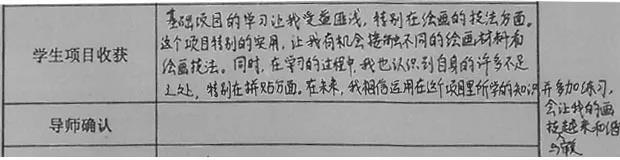 学生项目收获
基础项目的学习让我受益匪浅,特别在绘画的技法方面。
这个项目特别的实用,让我有机会接触不同的绘画材料和
绘画技法。同时,在学习的过程中,我也认识到自身的许多不足
之处,特别在拼贴方面。在未来,我相信运用在这个项目里所学的知识
并多加练习,
会让我的画
技越来
导师确认